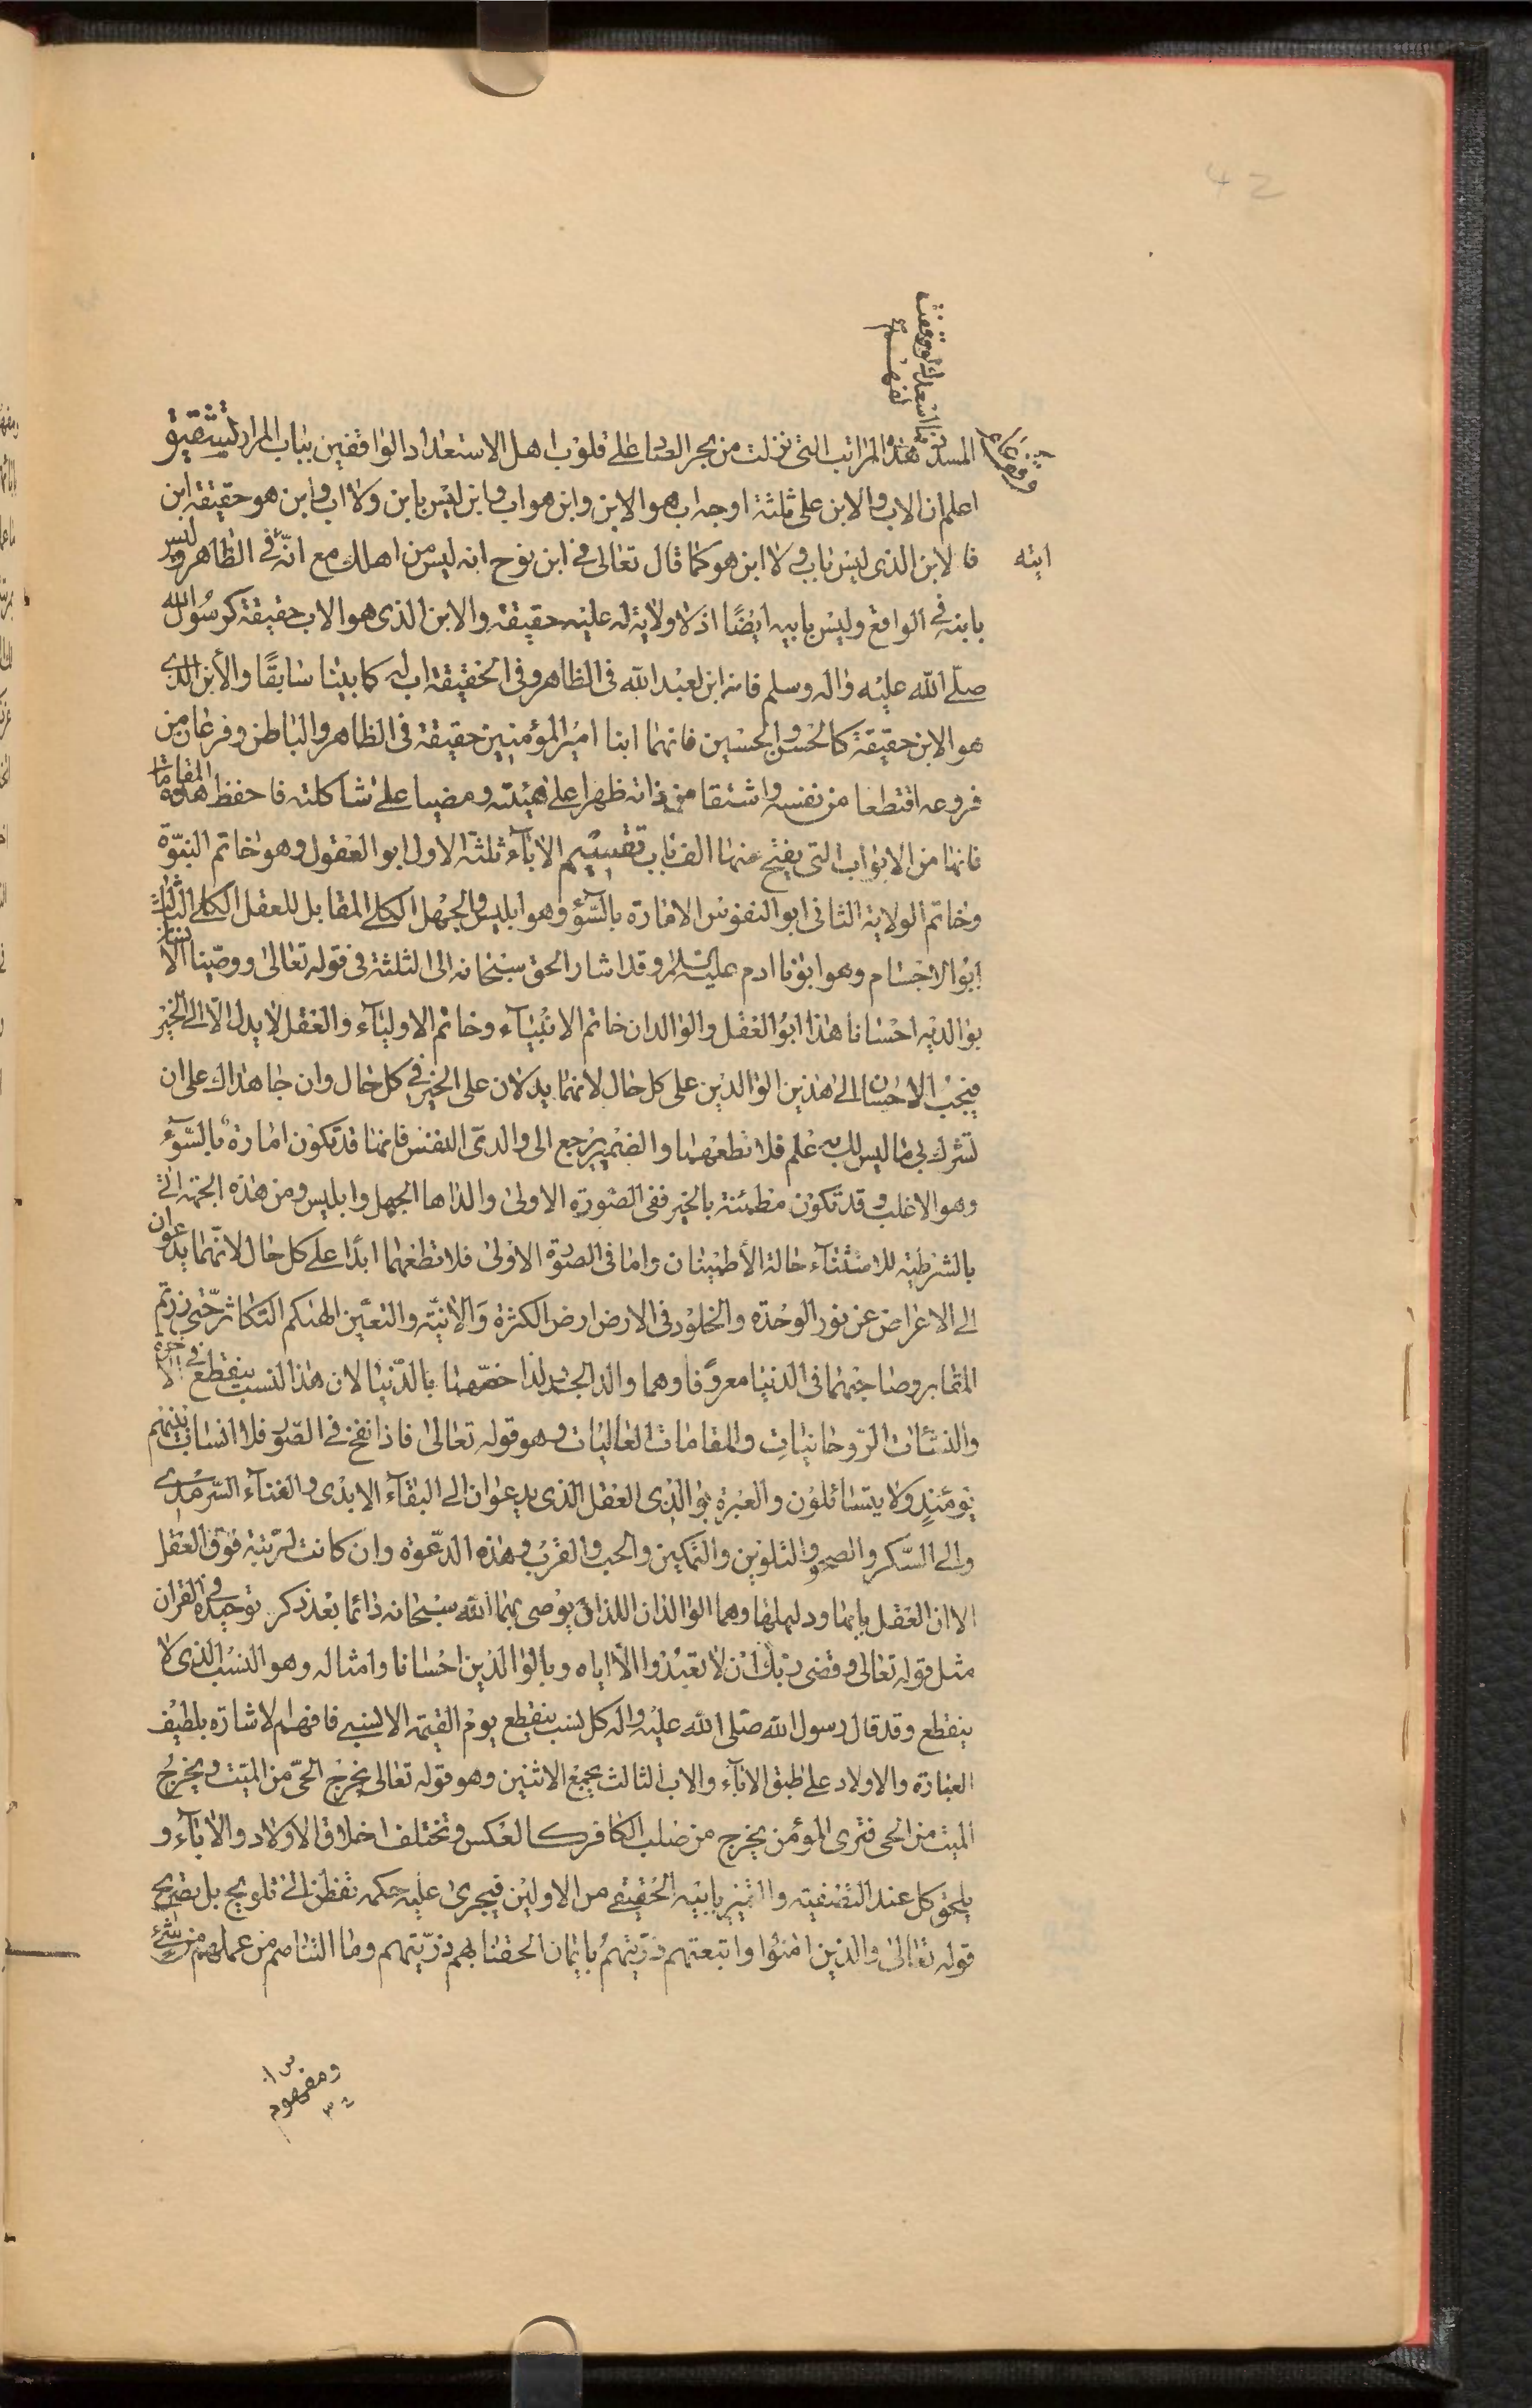 42
فما اسعدك لو وفقت
لفهم
المسدد هذه المراتب التى نزلت من بحر العماء على قلوب اهل الاستعداد الواقفين بباب المراد تشقيق
اعلم ان الاب والابن على ثلثة اوجه اب هو الابن وابن هو اب وابن ليس بابن ولا اب وابن هو حقيقة ابن
فالابن الذى ليس باب ولا ابن هو كما قال تعالى فى ابن نوح انه ليس من اهلك مع انّه فى الظاهر وليس
ابنه
بابنه فى الواقع وليس بابيه ايضًا اذ لا ولاية له عليه حقيقة والابن الذى هو الاب حقيقة كرسول الله
صلّى الله عليه واله وسلم فانه ابن لعبد الله فى الظاهر وفى الحقيقة اب له كما بينا سابقًا والأبن الذى
هو الابن حقيقة كالحسن والحسين فانهما ابنا امير المؤمنين حقيقة فى الظاهر والباطن وفرعان من
فروعه اقتطعا من نفسه واشتقا من ذاته ظهرا على هيئته ومضيا على شاكلته فاحفظ هذه المقامات
فانها من الابواب التى يفتح منها الف باب تقسيم الاباء ثلثة الاول ابو العقول وهو خاتم النبوّة
وخاتم الولاية الثانى ابو النفوس الامارة بالسّوء وهو ابليس والجهل الكلى المقابل للعقل الكلى الثالث
ابو الاجسام وهو ابونا ادم عليه السلام وقد اشار الحق سبحانه الى الثلثة فى قوله تعالى ووصّينا الانسان
بوالديه احسانا هذا ابو العقل والوالدان خاتم الانبياء وخاتم الاولياء والعقل لا يدل الّا الى الخير
فيجب الاحسان الى هذين الوالدين على كل حال لانهما يدلان على الخير فى كل حال وان جاهداك على ان
تشرك بى ما ليس لك به علم فلا تطعهما والضمير يرجع الى والدى النفس فانها قد تكون امارة بالسّوء
وهو الاغلب وقد تكون مطمئنة بالخير ففى الصّورة الاولى والداها الجهل وابليس ومن هذه الجهة اتى
بالشرطية للاستثناء حالة الأطمينان واما فى الصورة الاولى فلا تطعهما ابدًا على كل حال لانّهما يدعوان
الى الاعراض عن نور الوحدة والخلود فى الارض ارض الكثرة وَالأنيّة والتعيّن الهيكم التكاثر حتّى زرتم
المقابر وصاحبهما فى الدنيا معروفًا وهما والد الجسد لذا خصّهما بالدّنيا لان هذا النسب ينقطع فى الاخرة
والنشئات الرّوحانيات والمقامات العاليات وهو قوله تعالى فاذا نفخ فى الصّور فلا انساب بينهم
يومئذٍ ولا يتسائلون والعبرة بوالدى العقل الذى يدعوان الى البقاء الابدى والفناء السّرمدى
والى السّكر والصحو والتلوين والتمكين والحب والقرب وهذه الدّعوة وان كانت لمرتبة فوق العقل
الا ان العقل بابها ودليلها وهما الوالدان اللذان يوصى بهما الله سبحانه دائما بعد ذكر توحيده فى القران
مثل قوله تعالى وقضى ربّك انْ لا تعبدوا الّا اياه وبالوالدين احسانا وامثاله وهو النسب الذى لا
ينقطع وقد قال رسول الله صلى الله عليه واله كل نسب ينقطع يوم القيمة الا نسبى فافهم الاشارة بلطيف
العبارة والاولاد على طبق الاباء والاب الثالث يجمع الاثنين وهو قوله تعالى يخرج الحىّ من الميّت ويخرج
الميّت من الحى فترى المؤمن يخرج من صلب الكافر كالعكس وتختلف اخلاق الاولاد والاباء و
يلحق كل عند التصفية والتميز بابيه الحقيقى من الاولين فيجرى عليه حكمه تفطن الى تلويح بل تصريح
قوله تعالى والذين امنوا واتبعتهم ذرّيتهم بايمان الحقنا بهم ذرّيتهم وما التناهم من عملهم من شىء
ومفهوم